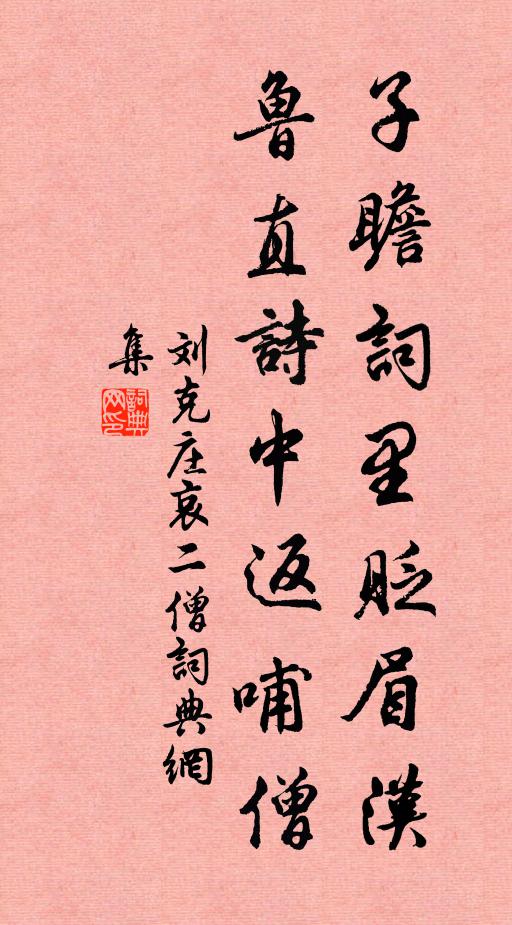 子瞻詞里眨眉漢
魯直詩中返哺僧
刘克庄哀二僧詞典網
集
詞典網印